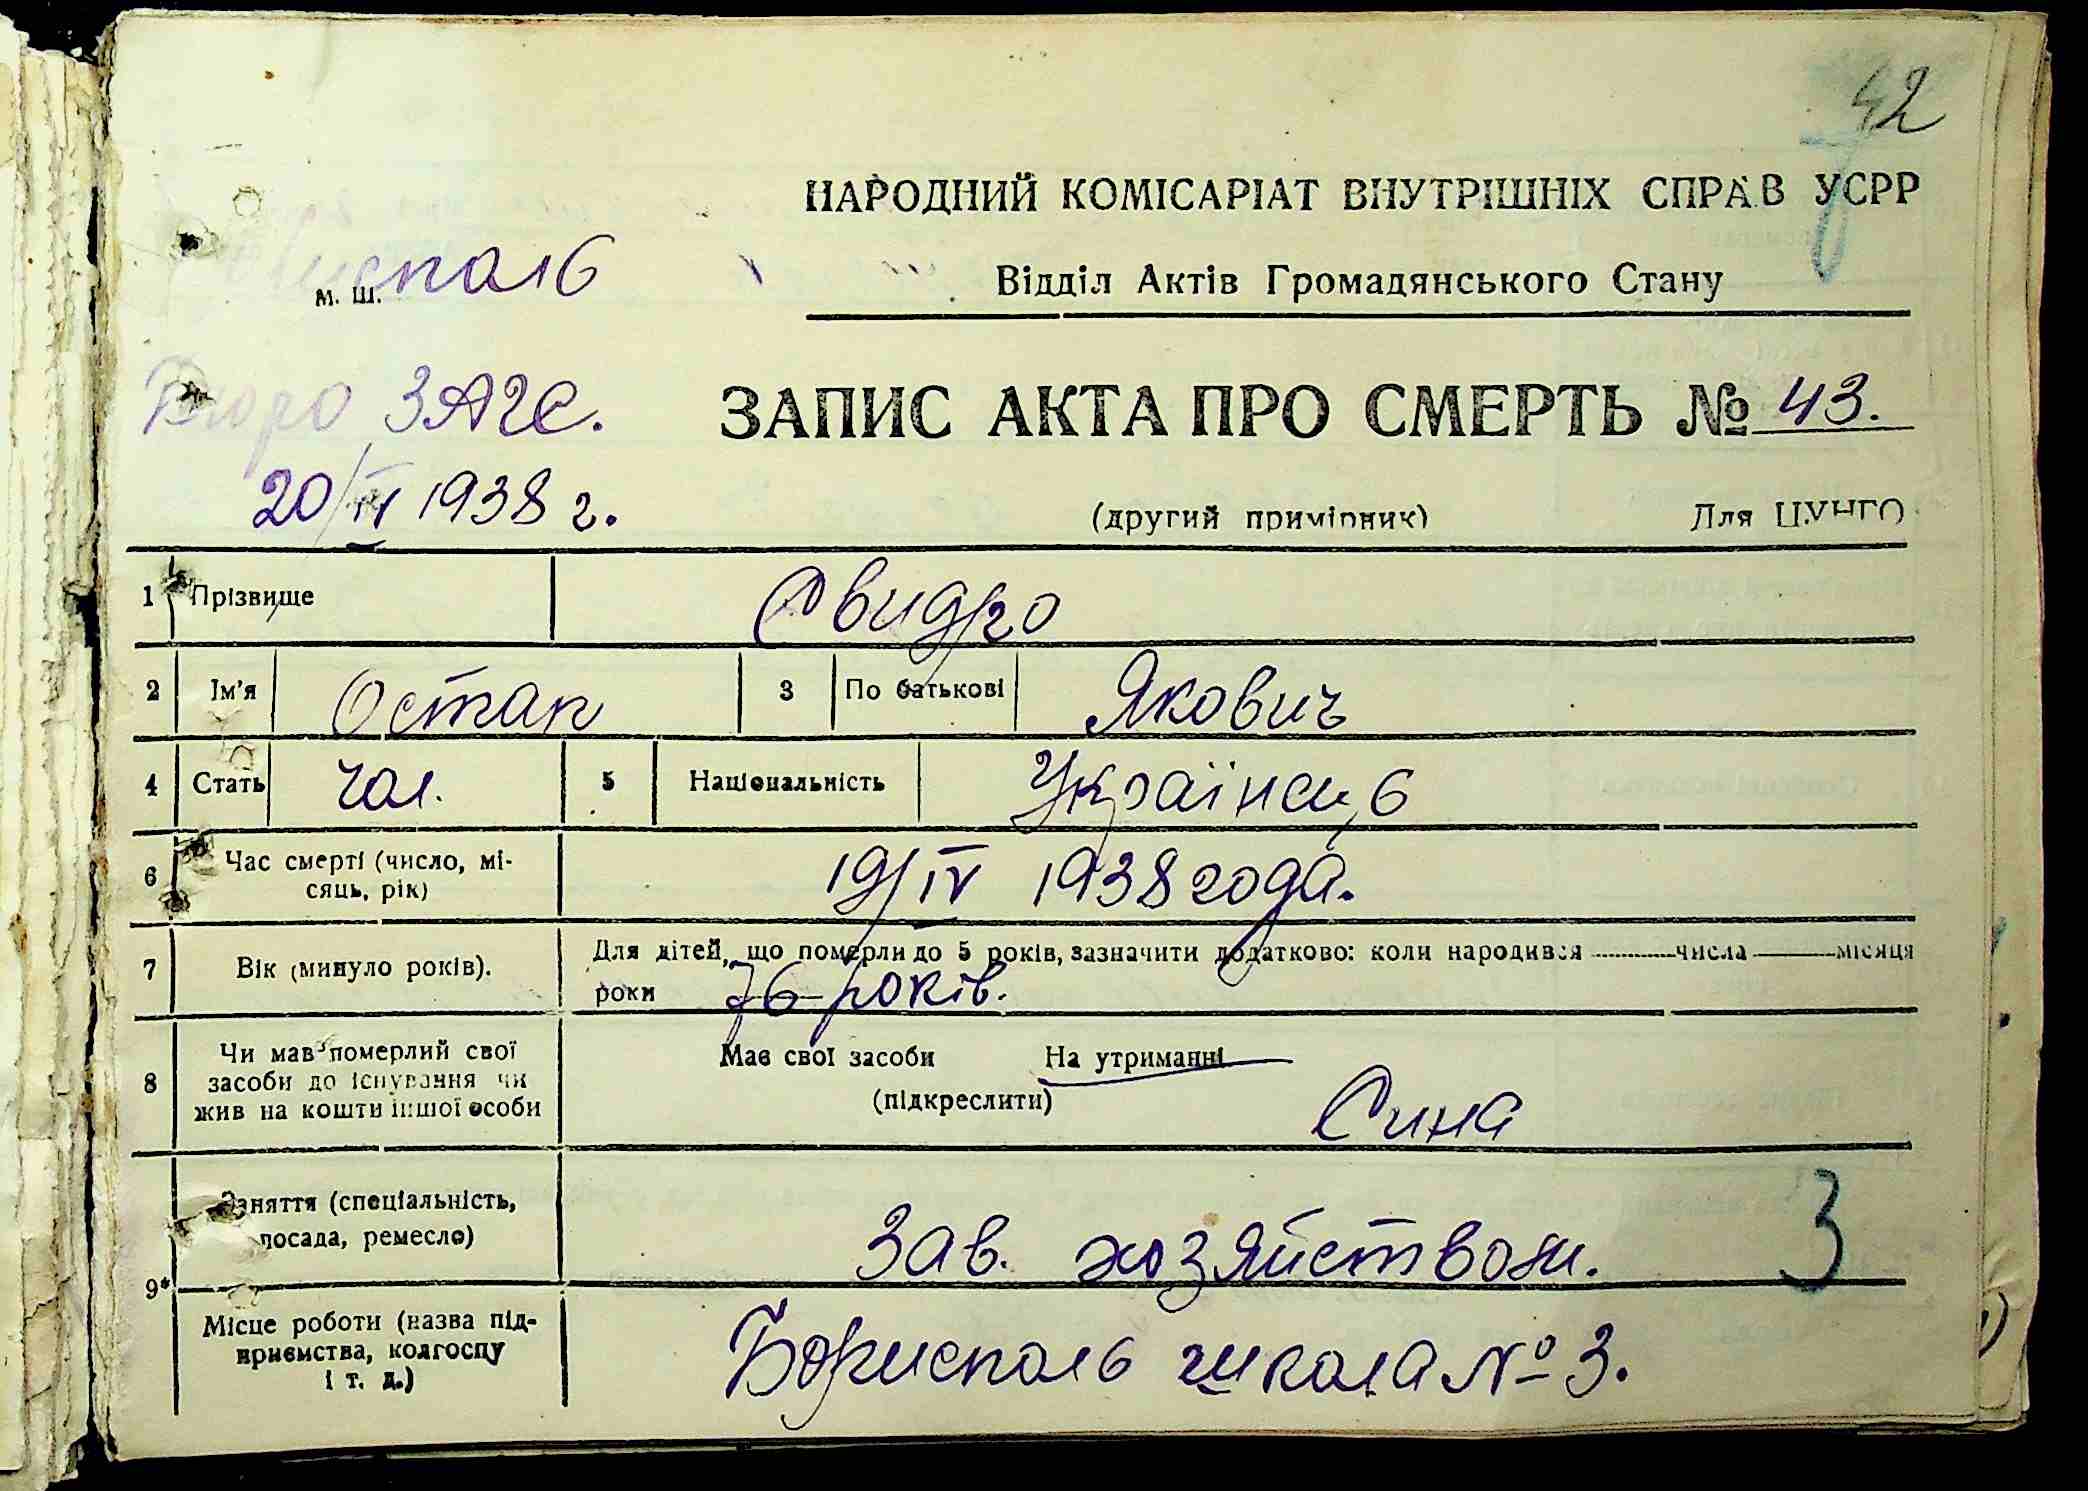 42
НАРОДНИЙ КОМІСАРІАТ ВНУТРІШНІХ СПРАВ УСРР
м. ш.
Відділ Актів Громадянського Стану
Бюро ЗАГС.
ЗАПИС АКТА ПРО СМЕРТЬ № 43.
20/IV 1938 г.
(другий примірник) Для ЦУНГО
1 Прізвище Свидро
2 Ім'я Остап 3 По батькові Якович
4 Стать чол. 5 Національність Українець
6 Час смерті (число, мі-
сяць, рік) 19/IV 1938 года.
7 Вік (минуло років). Для дітей, що померли до 5 років, зазначити додатково: коли народився числа місяця
роки 76 років.
8 Чи мав померлий свої
засоби до існування чи
жив на кошти іншої особи
Має свої засоби На утриманні
(підкреслити)
Сина
9* Заняття (спеціальність,
посада, ремесло) Зав. хозяйством. 3
Місце роботи (назва під-
приємства, колгоспу
і т. д.) Борисполь школа № 3.